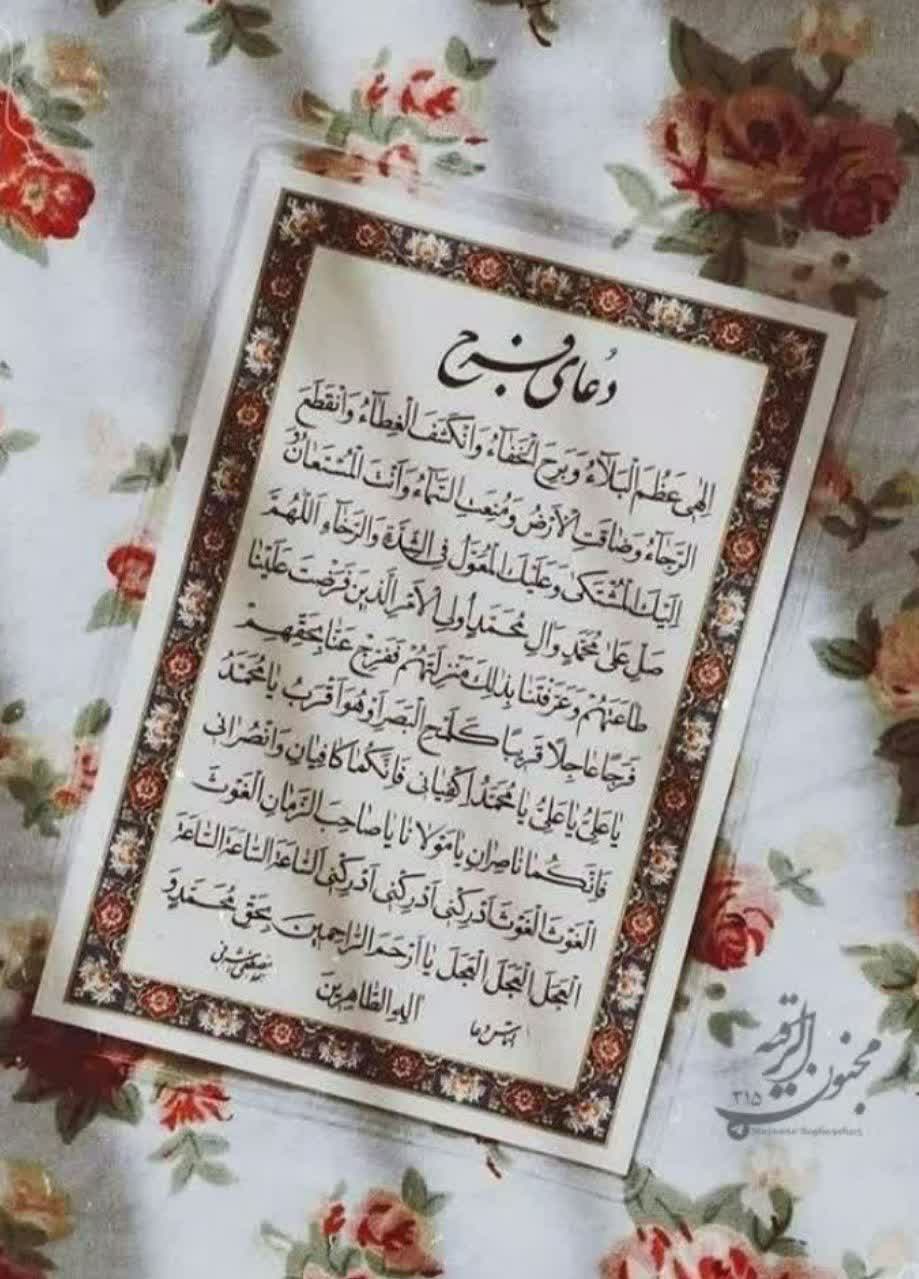 دُعای فرج
اِلٰهی عَظُمَ الْبَلآءُ وَبَرِحَ الْخَفآءُ وَانْكَشَفَ الْغِطآءُ وَانْقَطَعَ
الرَّجآءُ وَضاقَتِ الْاَرْضُ وَمُنِعَتِ السَّمآءُ وَاَنْتَ الْمُسْتَعانُ وَ
اِلَيْكَ الْمُشْتَكیٰ وَعَلَيْكَ الْمُعَوَّلُ فِی الشِّدَّةِ وَالرَّخآءِ اَللّٰهُمَّ
صَلِّ عَلیٰ مُحَمَّدٍ وَالِ مُحَمَّدٍ اُولِی الْاَمْرِ الَّذينَ فَرَضْتَ عَلَيْنا
طاعَتَهُمْ وَعَرَّفْتَنا بِذٰلِكَ مَنْزِلَتَهُمْ فَفَرِّجْ عَنّا بِحَقِّهِمْ
فَرَجاً عاجِلاً قَريباً كَلَمْحِ الْبَصَرِ اَوْ هُوَ اَقْرَبُ يا مُحَمَّدُ
يا عَلِیُّ يا عَلِیُّ يا مُحَمَّدُ اِكْفِيانی فَاِنَّكُما كافِيانِ وَانْصُرانی
فَاِنَّكُما ناصِرانِ يا مَوْلانا يا صاحِبَ الزَّمانِ الْغَوْثَ
الْغَوْثَ الْغَوْثَ اَدْرِكْنی اَدْرِكْنی اَدْرِكْنی اَلسّاعَةَ السّاعَةَ السّاعَةَ
الْعَجَلَ الْعَجَلَ الْعَجَلَ يا اَرْحَمَ الرّاحِمينَ بِحَقِّ مُحَمَّدٍ وَ
الِهِ الطّاهِرينَ
التماس دعا
مجنون الرقیه
۳۱۵